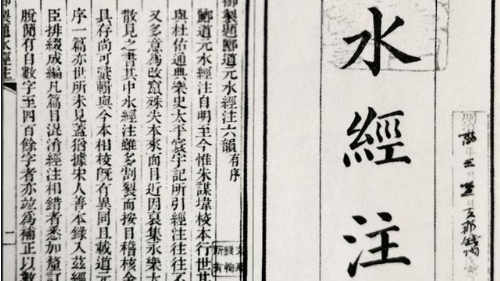 水經注
御製題酈道元水經注六韻有序
酈道元水經注自明至今惟朱謀㙔校本行世其
與杜佑通典樂史太平寰宇記所引經注往往不
又多意為改竄殊失本來面目近因裒集永樂大
散見之書其中水經注雖多割裂而按目稽核全
具存尚可彙輯與今本相校既有異同且載道元
序一篇亦世所未見蓋猶據宋人善本錄入茲經
臣排綴成編凡篇目混淆經注相錯者悉加釐訂
脫簡有自數字至四百餘字者亦並為補正以數